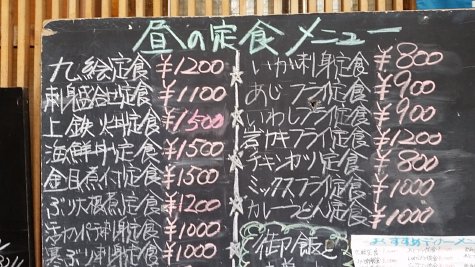 昼の定食メニュー
九絵定食 ¥1200
刺身盛合せ定食 ¥1100
上鉄火丼定食 ¥1500
海鮮丼定食 ¥1500
金目煮付定食 ¥1300
ぶり大根煮定食 ¥1200
刺身定食 ¥1000
寒ぶり刺身定食 ¥1000
いか刺身定食 ¥800
あじフライ定食 ¥900
いわしフライ定食 ¥900
岩カキフライ定食 ¥1200
チキンカツ定食 ¥800
ミックスフライ定食 ¥1000
カレーうどん定食 ¥1000
御飯
おすすめ